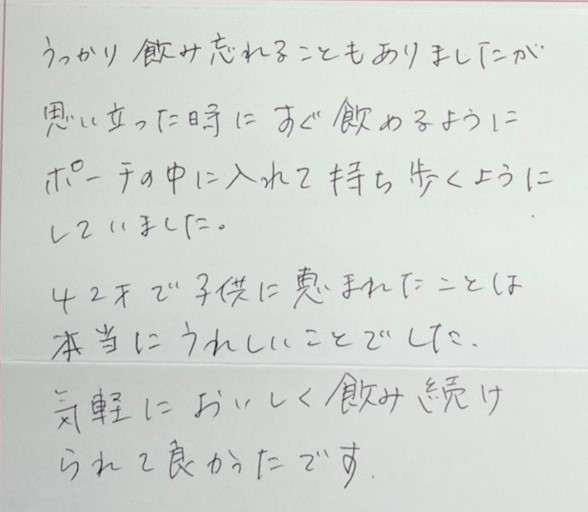 うっかり飲み忘れることもありましたが
思い立った時にすぐ飲めるように
ポーチの中に入れて持ち歩くように
していました。
42才で子供に恵まれたことは
本当にうれしいことでした.
気軽においしく飲み続け
られて良かったです.